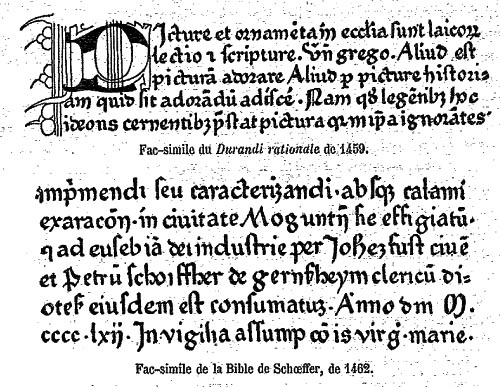 Picture et ornamēta in ecclīa sunt laicorꝝ
lectio ⁊ scripture. Vn̄ grego. Aliud est
picturā adorare Aliud ꝑ picture histori-
am quid sit adorādū adiscē. Nam qd̄ legētibꝫ
ideons cernentibꝫ p̄stat pictura qꝛ in ip̄a ignorātes
Fac-simile du Durandi rationale de 1459.
imp̄mendi seu caracterizandi · absqꝫ calami
exaracōn̄ · in ciuitate Moguntn̄ sic effigiatū ·
⁊ ad eusebiā dei industrie per Johēꝫ fust ciuē
et Petrū schoiffher de gernsheym clericū di-
otes̄ eiusdem est consumatuꝫ · Anno dm̄ M ·
cccc · lxij · In vigilia assump cōis virḡ · marie ·
Fac-simile de la Bible de Schœffer, de 1462.